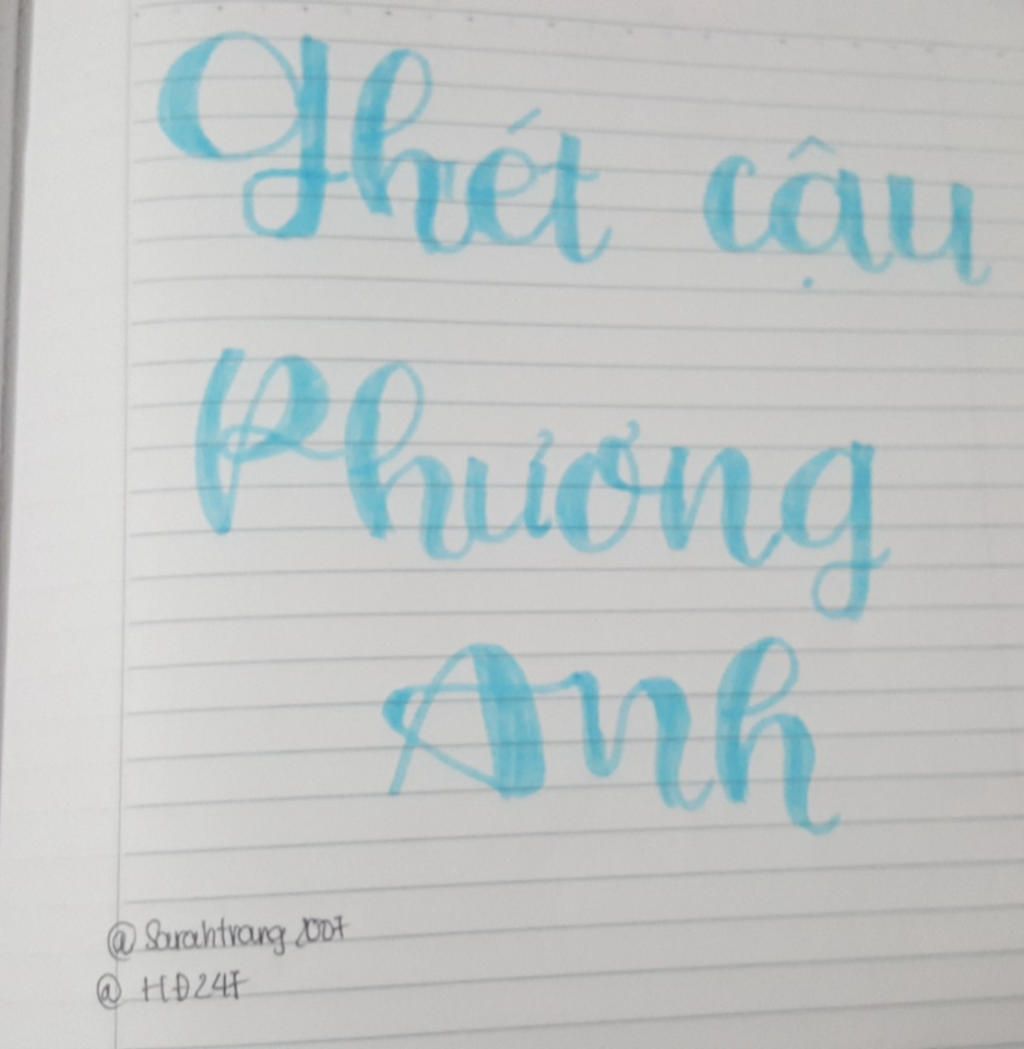 Ghét cậu
Phương
Anh
@ Sarahtrang 2007
@ HĐ247